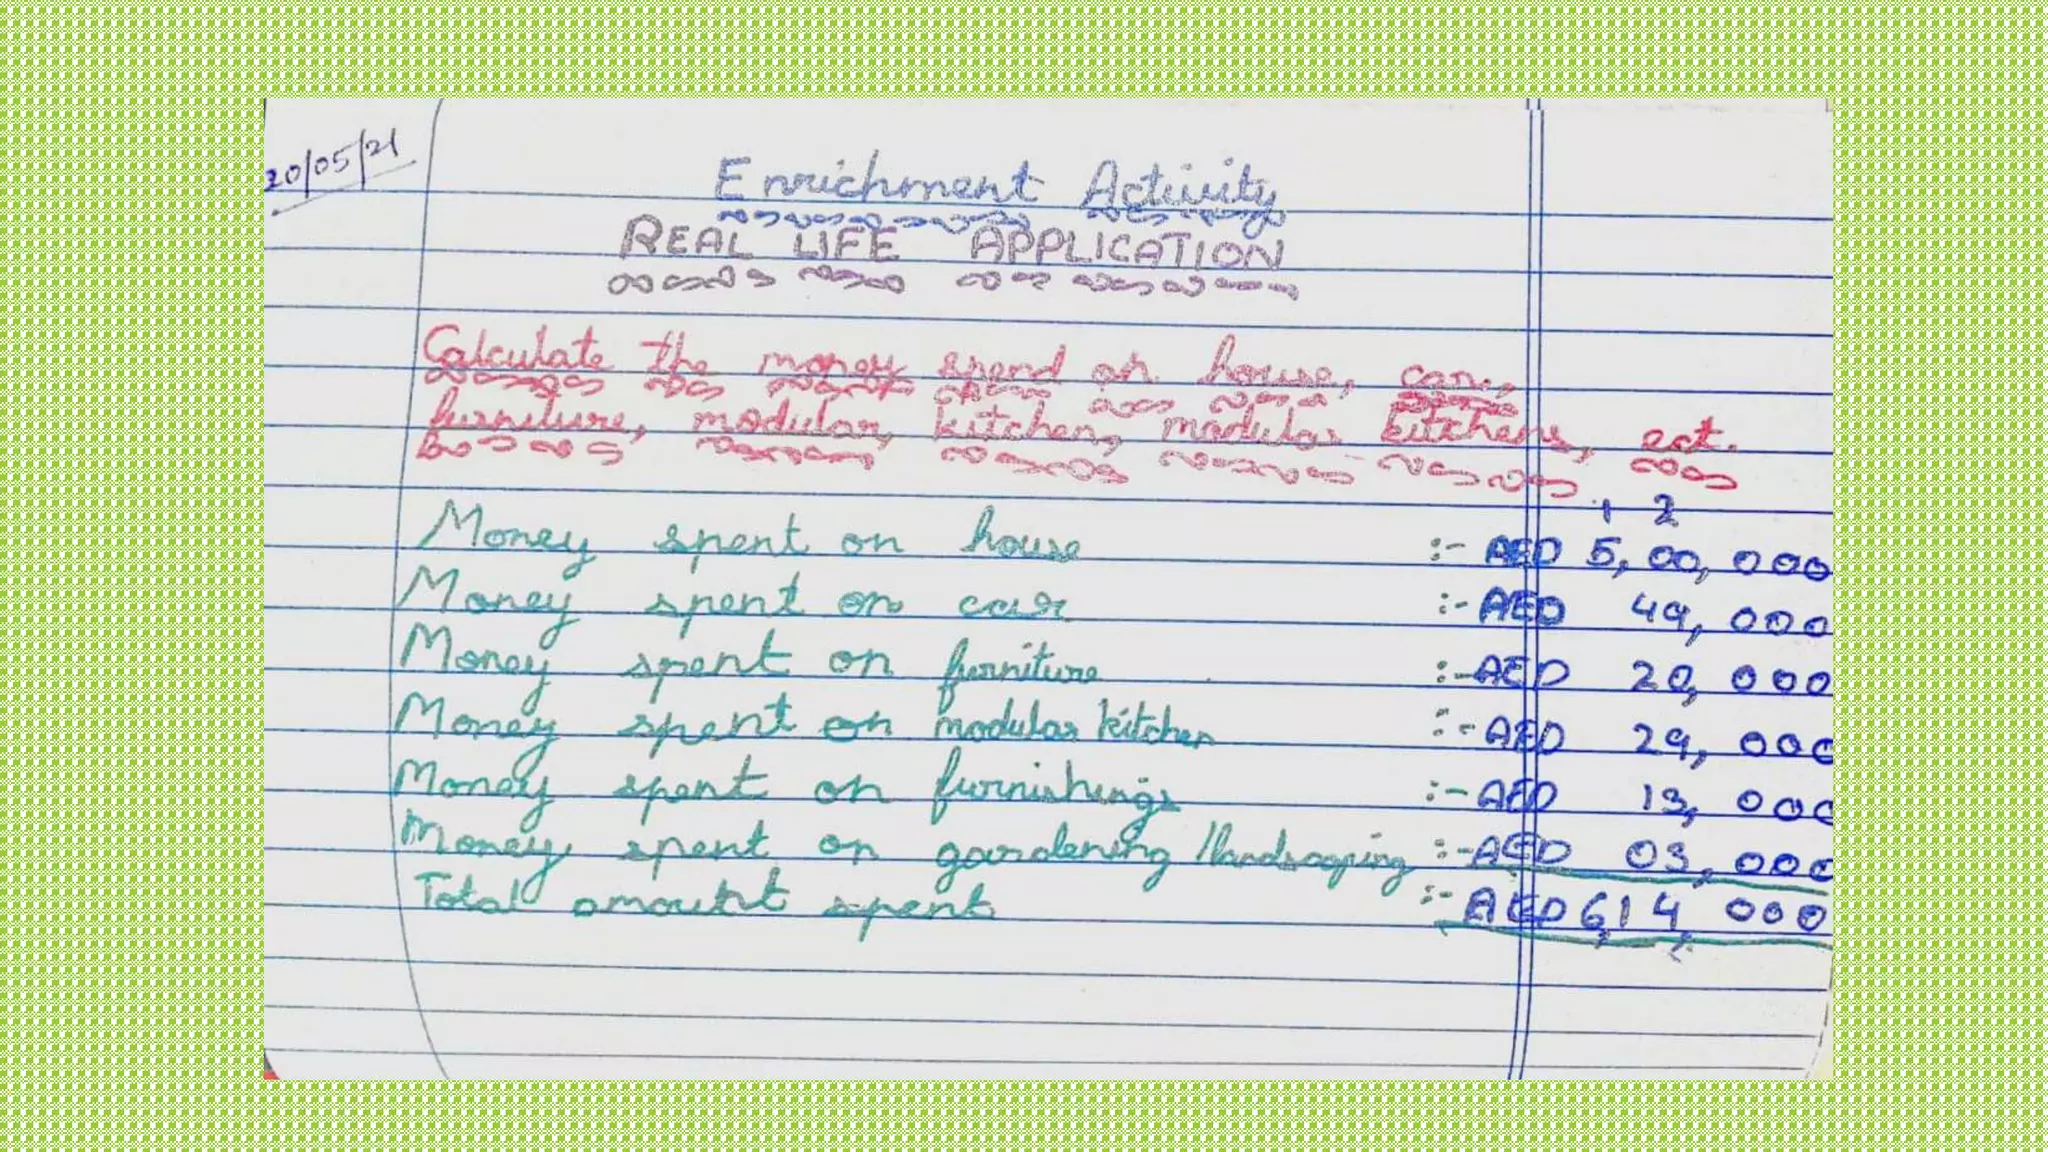 20/05/21
Enrichment Activity
REAL LIFE APPLICATION
Calculate the money spend on house, car,
furniture, modular, kitchen, modular kitchens, ect.
1 2
Money spent on house :- AED 5,00,000
Money spent on car :- AED 49,000
Money spent on furniture :- AED 20,000
Money spent on modular kitchen :- AED 29,000
Money spent on furnishings :- AED 13,000
Money spent on gardening/landscaping :- AED 03,000
Total amount spent :- AED 6,14,000